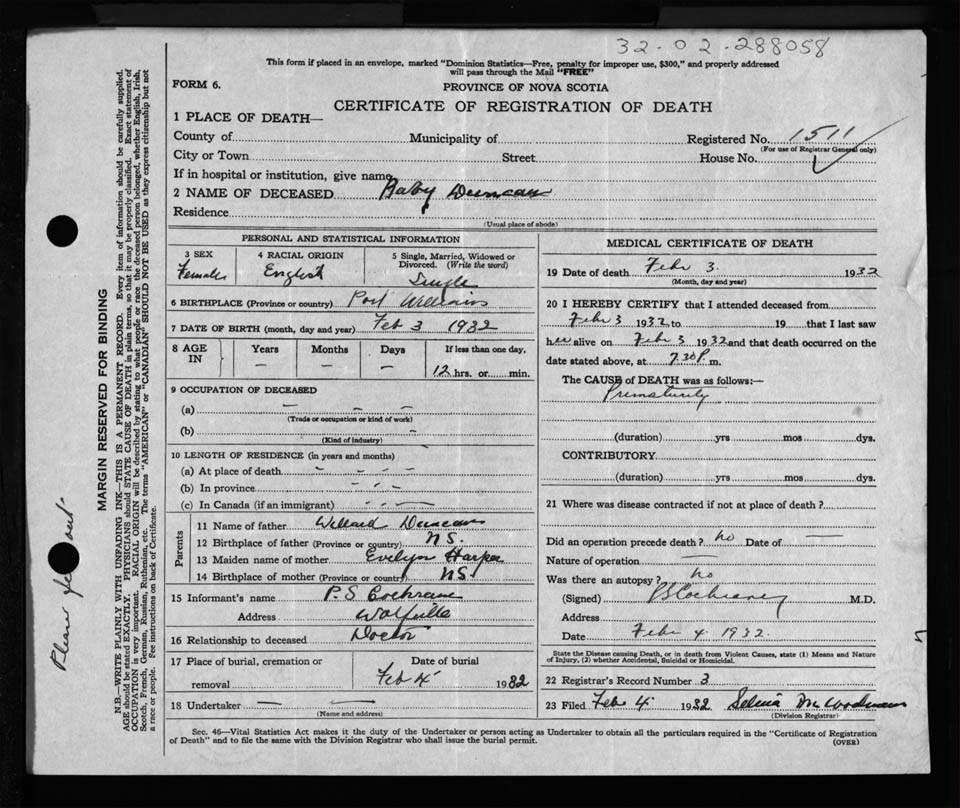 32-02-288058
This form if placed in an envelope, marked "Dominion Statistics—Free, penalty for improper use, $300," and properly addressed
will pass through the Mail "FREE"
FORM 6.
PROVINCE OF NOVA SCOTIA
CERTIFICATE OF REGISTRATION OF DEATH
1 PLACE OF DEATH—
County of Municipality of Registered No. 1511
(For use of Registrar General only)
City or Town Street House No.
If in hospital or institution, give name
2 NAME OF DECEASED Baby Duncan
Residence
(Usual place of abode)
PERSONAL AND STATISTICAL INFORMATION
3 SEX 4 RACIAL ORIGIN 5 Single, Married, Widowed or
Divorced. (Write the word)
Female English Single
6 BIRTHPLACE (Province or country) Port Williams
7 DATE OF BIRTH (month, day and year) Feb 3 1932
8 AGE IN Years Months Days If less than one day,
— — — 12 hrs. or min.
9 OCCUPATION OF DECEASED
(a) — — —
(Trade or occupation or kind of work)
(b) —
(Kind of industry)
10 LENGTH OF RESIDENCE (in years and months)
(a) At place of death
(b) In province
(c) In Canada (if an immigrant)
Parents
11 Name of father Willard Duncan
12 Birthplace of father (Province or country) N S.
13 Maiden name of mother Evelyn Harpe
14 Birthplace of mother (Province or country) N S
15 Informant's name P. S Cochrane
Address Wolfville
16 Relationship to deceased Doctor
17 Place of burial, cremation or Date of burial
removal Feb 4 1932
18 Undertaker — —
(Name and address)
MEDICAL CERTIFICATE OF DEATH
19 Date of death Febr 3. 1932
(Month, day and year)
20 I HEREBY CERTIFY that I attended deceased from
Febr 3 1932 to 19 that I last saw
her alive on Febr 3 1932 and that death occurred on the
date stated above, at 7.30 P. m.
The CAUSE of DEATH was as follows:—
Prematurity
(duration) yrs mos dys.
CONTRIBUTORY
(duration) yrs mos dys.
21 Where was disease contracted if not at place of death?
Did an operation precede death? no Date of —
Nature of operation —
Was there an autopsy? no
(Signed) PSCochrane M.D.
Address
Date Febr 4 1932.
State the Disease causing Death, or in death from Violent Causes, state (1) Means and Nature
of Injury, (2) whether Accidental, Suicidal or Homicidal.
22 Registrar's Record Number 3
23 Filed Febr 4 1932 Selina M Woodman
(Division Registrar)
Sec. 46—Vital Statistics Act makes it the duty of the Undertaker or person acting as Undertaker to obtain all the particulars required in the "Certificate of Registration
of Death" and to file the same with the Division Registrar who shall issue the burial permit.
(OVER)
MARGIN RESERVED FOR BINDING
N.B.—WRITE PLAINLY WITH UNFADING INK—THIS IS A PERMANENT RECORD. Every item of information should be carefully supplied.
AGE should be stated EXACTLY. PHYSICIANS should STATE CAUSE OF DEATH in plain terms, so that it may be properly classified. Exact statement of
OCCUPATION is very important. RACIAL ORIGIN will be described by stating to what people or race the deceased person belonged, whether English, Irish,
Scotch, French, German, Russian, Ruthenian, etc. The terms "AMERICAN" or "CANADIAN" SHOULD NOT BE USED as they express citizenship but not
a race or people. See instructions on back of Certificate.
Please out